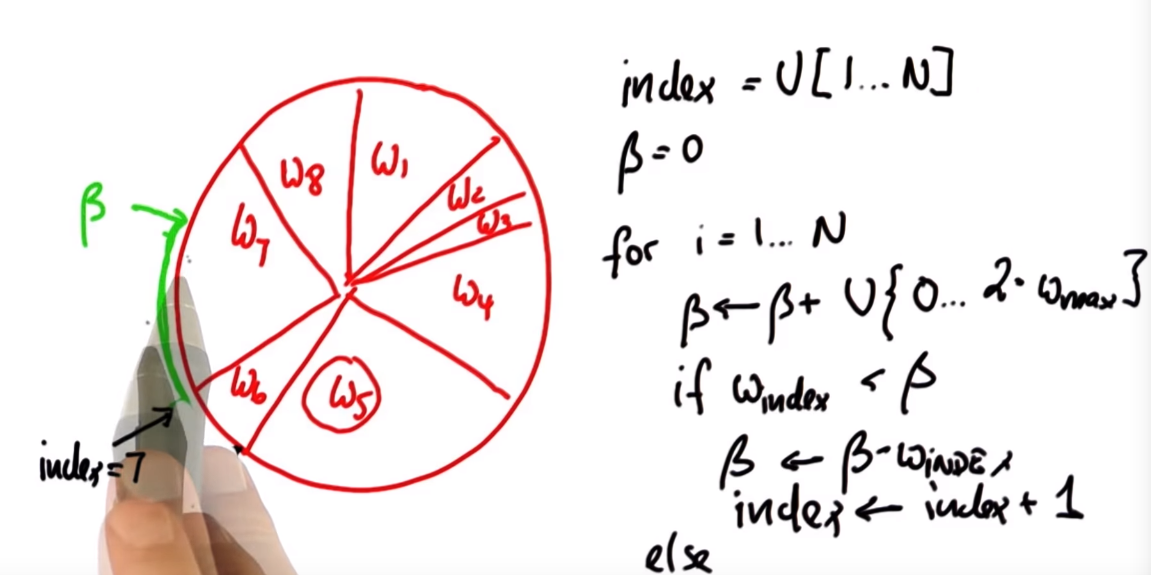 ω8
ω1
ω2
ω3
ω7
ω4
ω6
ω5
β
index=7
index = U[1...N]
β=0
for i = 1... N
β←β+ U{0... 2·ωmax]
if ωindex < β
β ← β-ωINDEX
index ← index + 1
else